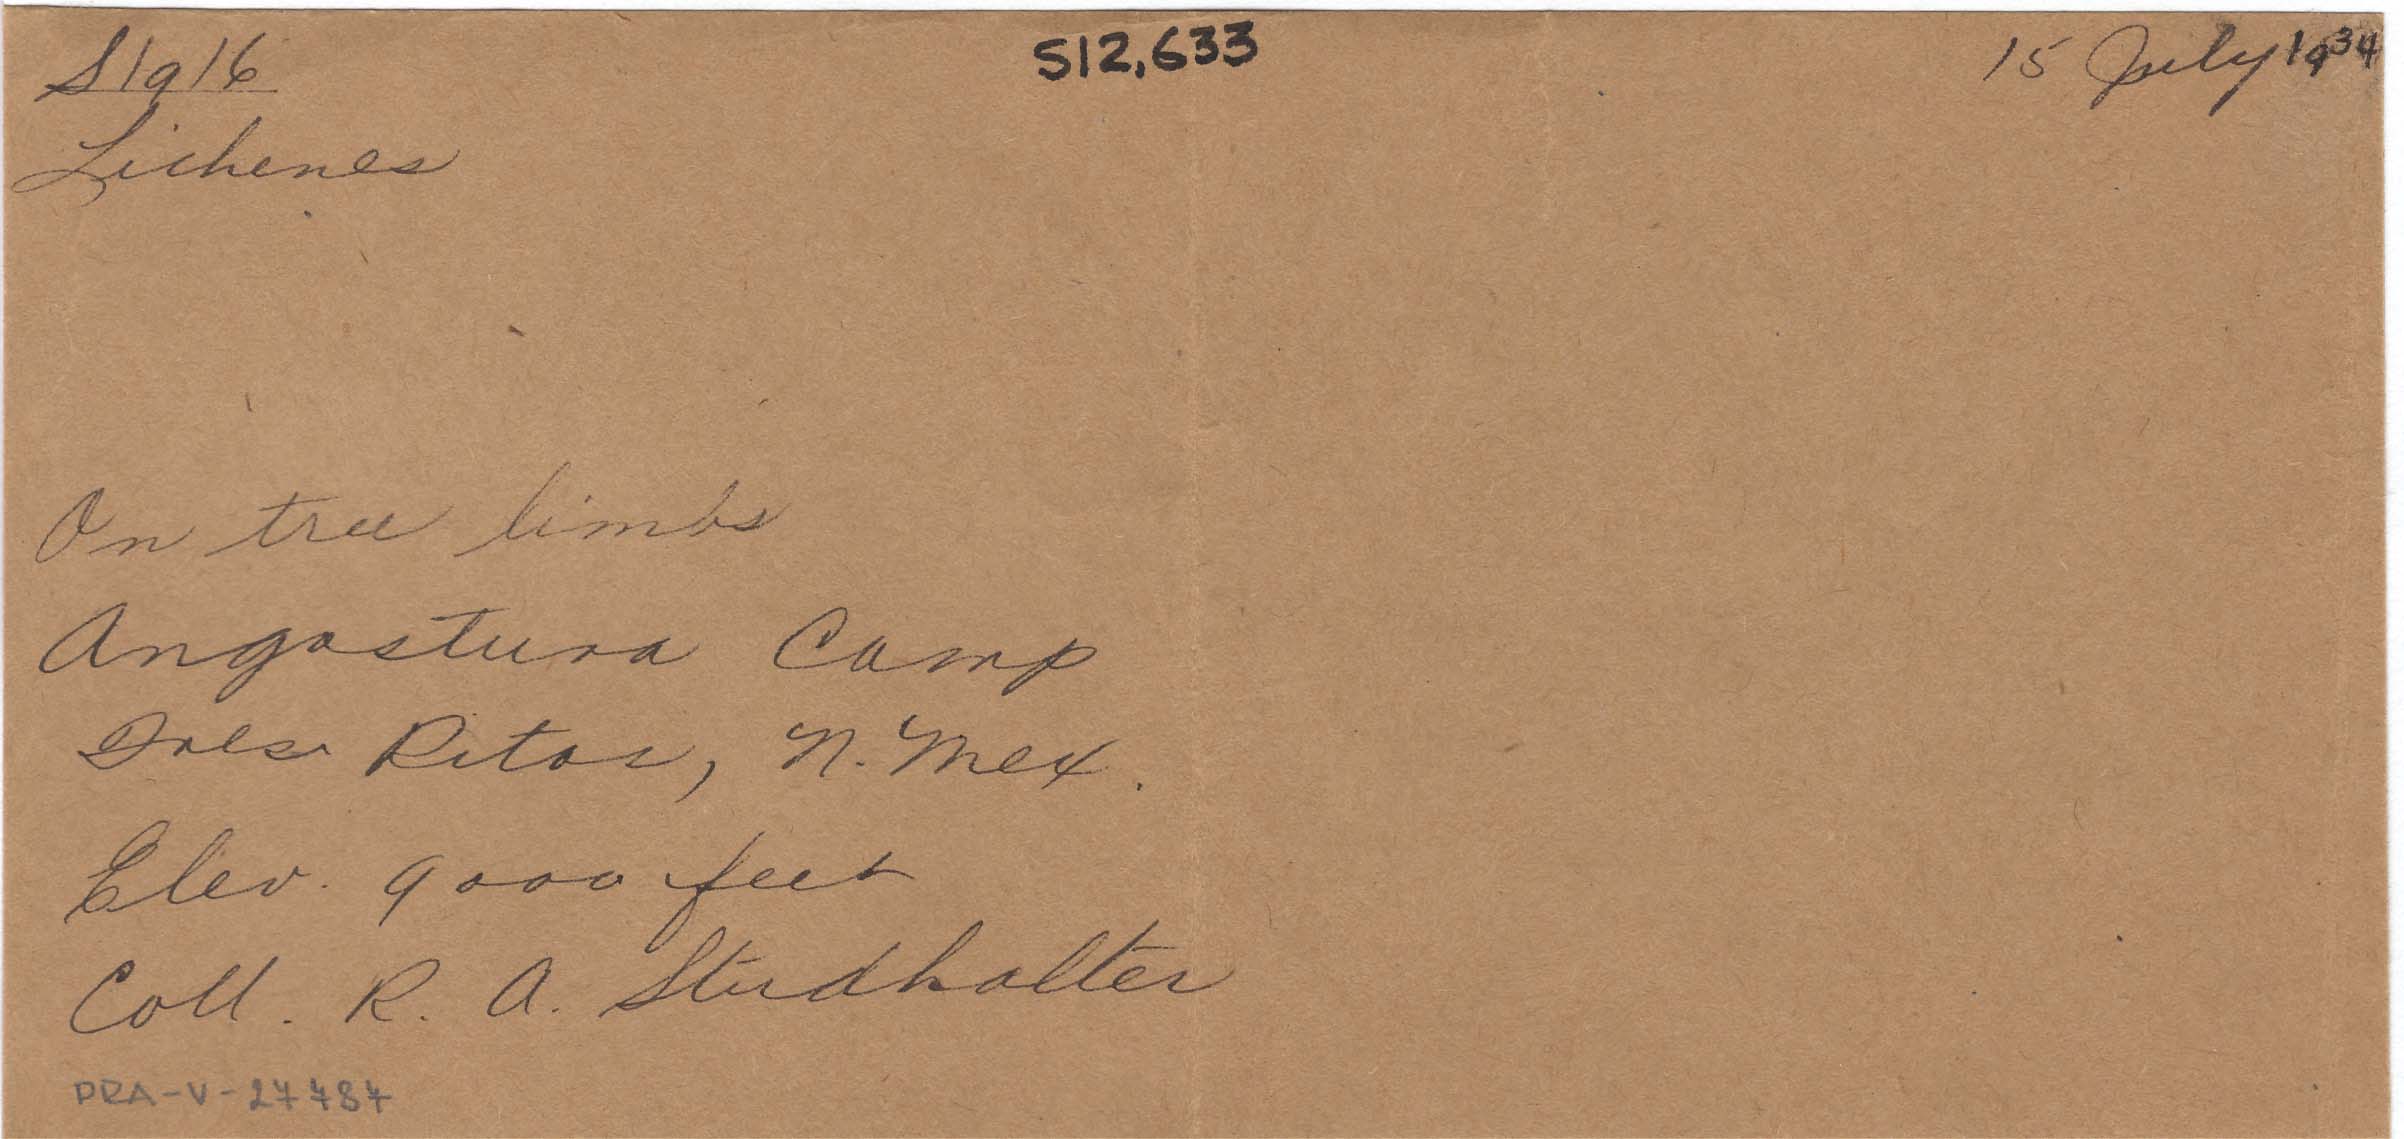 S1916
512,633
15 July 1934
Lichenes
On tree limbs
Angostura Camp
Tres Ritos, N. Mex.
Elev. 9000 feet
Coll. R. A. Studhalter
PRA-V-